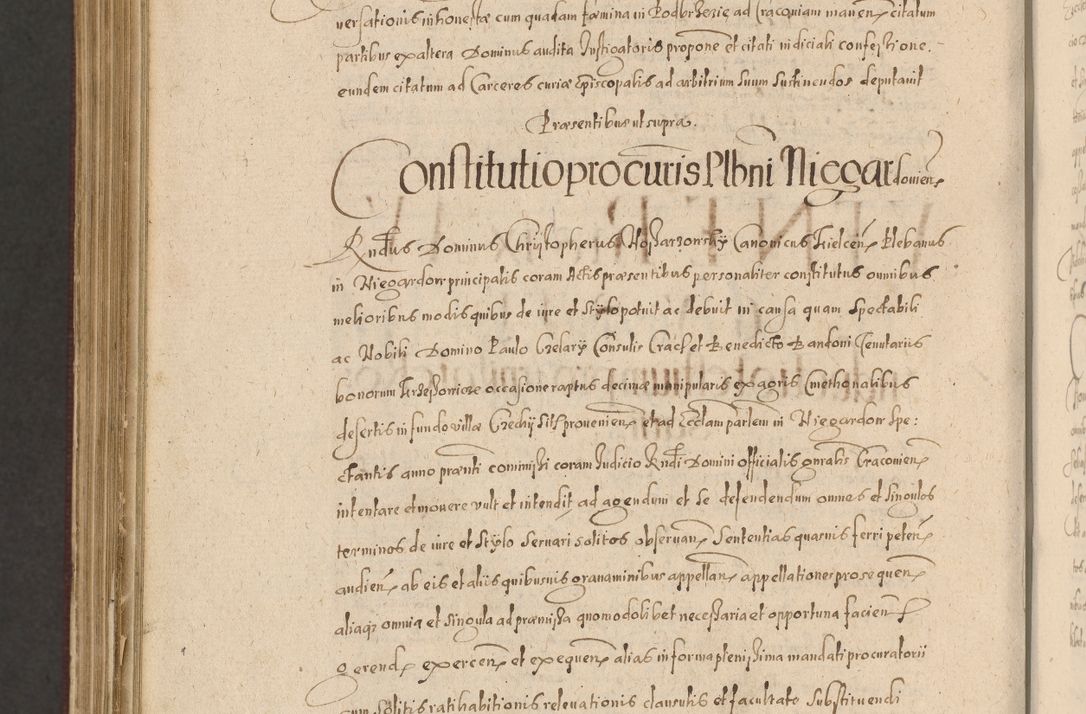 versationis inhonestæ cum quadam fæmina in Bodbrzezie ad Cracoviam manen citatum
partibus ex altera Dominus audita Instigatoris propone et citati iudiciali confessione
eundem citatum ad Carceres curiæ Episcopalis ad arbitrium suum sustinendos deputavit
Præsentibus ut supra.
Constitutio procuris Plbni Niegardovien
Rndus Dominus Christopherus Canonicus Kielcen Plebanus
in Niegardow principalis coram Actis præsentibus personaliter constitutus omnibus
melioribus modis quibus de iure et stylo potuit ac debuit in causa quam spectabili
ac Nobili Domino Paulo Celary Consuli Crac et Benedicto Bandoni Tenutarius
bonorum occasione raptus decimæ manipularis ex agris Cmethonalibus
desertis in fundo villæ provenien et ad Ecclam parlem in Niegardow spe:
ctantis anno præsnti commissi coram Judicio Rndi Domini officialis gnralis Cracovien
intentare et movere vult et intendit ad agendum et se defendendum omnes et singulos
terminos de iure et stylo servari solitos observan Sententias quasvis ferri peten
audien ab eis et aliis quibusvis gravaminibus appellan appellationes prosequen
aliaq omnia et singula ad præmissa quomodolibet necessaria et opportuna facien
gerend exercen et exequen alias in forma plenissima mandati procuratorii
cum solitis ratihabitionis relevationis clausulis et facultate substituendi